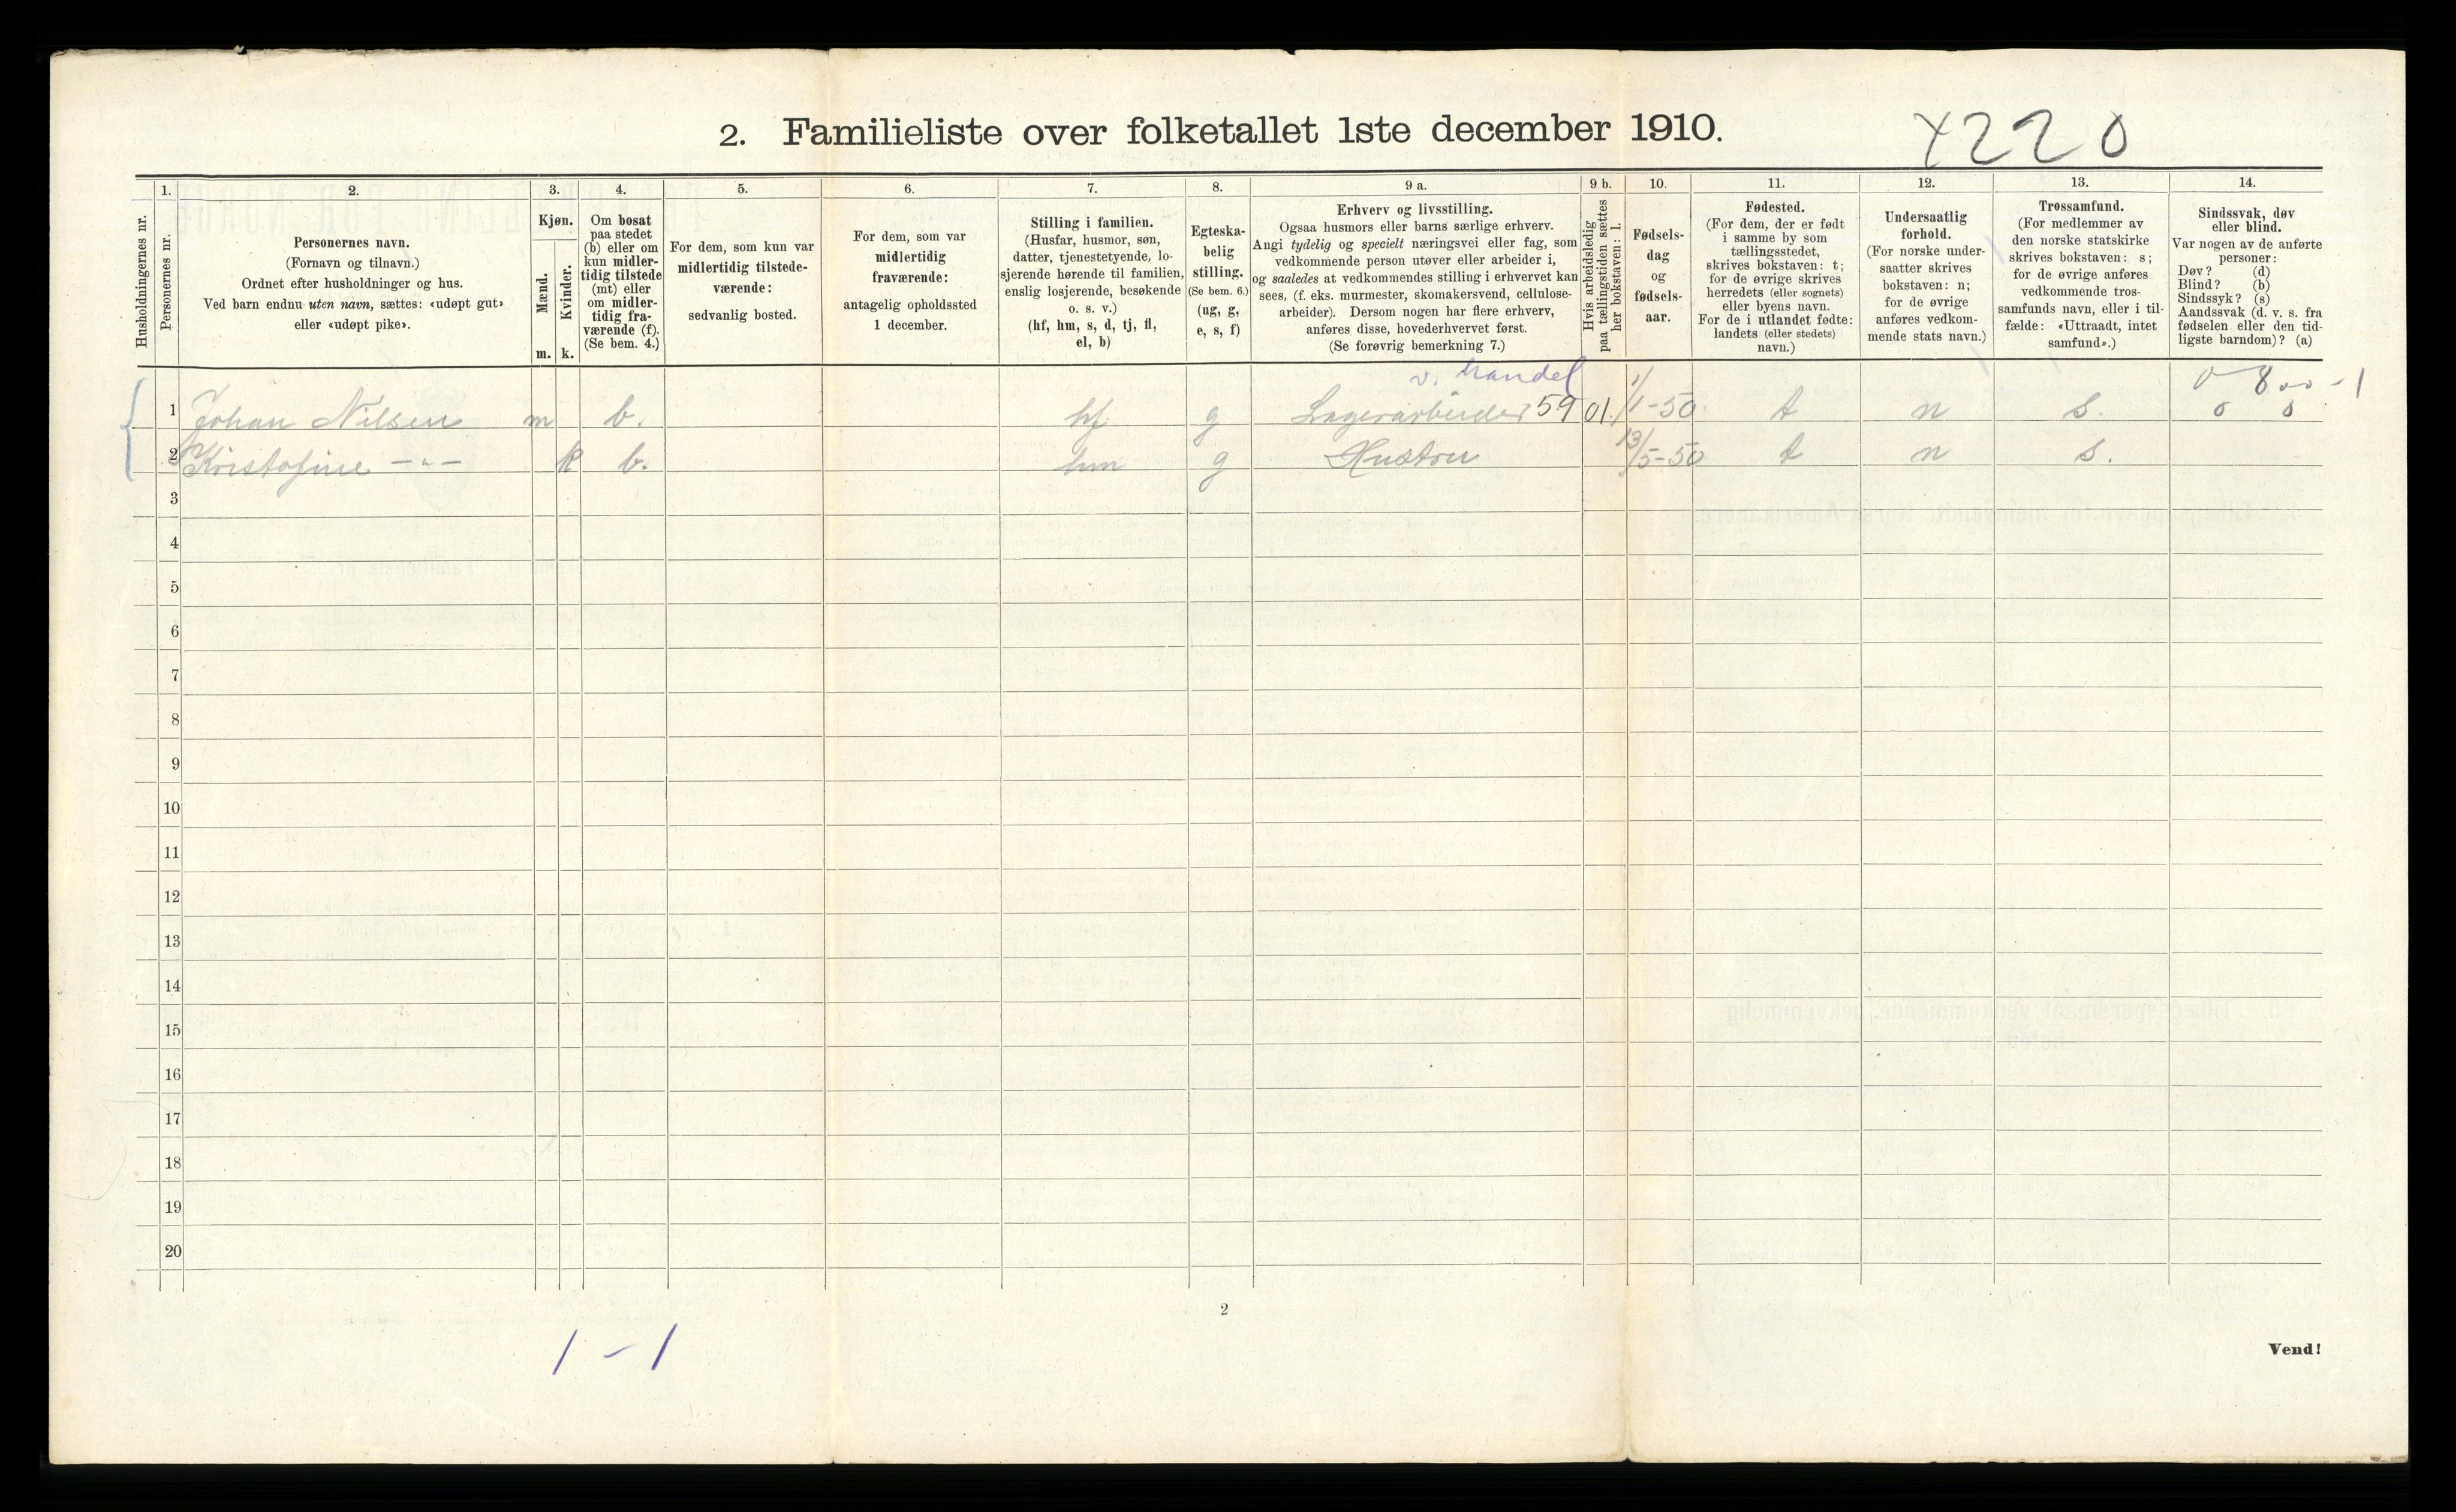 2. Familieliste over folketallet 1ste december 1910.
4220
Husholdningernes nr.
1.
Personernes nr.
2.
Personernes navn.
(Fornavn og tilnavn.)
Ordnet efter husholdninger og hus.
Ved barn endnu uten navn, sættes: «udøpt gut»
eller «udøpt pike».
3.
Kjøn.
Mænd.
Kvinder.
m. k.
4.
Om bosat
paa stedet
(b) eller om
kun midler-
tidig tilstede
(mt) eller
om midler-
tidig fra-
værende (f).
(Se bem. 4.)
5.
For dem, som kun var
midlertidig tilstede-
værende:
sedvanlig bosted.
6.
For dem, som var
midlertidig
fraværende:
antagelig opholdssted
1 december.
7.
Stilling i familien.
(Husfar, husmor, søn,
datter, tjenestetyende, lo-
sjerende hørende til familien,
enslig losjerende, besøkende
o. s. v.)
(hf, hm, s, d, tj, fl,
el, b)
8.
Egteska-
belig
stilling.
(Se bem. 6.)
(ug, g,
e, s, f)
9 a.
Erhverv og livsstilling.
Ogsaa husmors eller barns særlige erhverv.
Angi tydelig og specielt næringsvei eller fag, som
vedkommende person utøver eller arbeider i,
og saaledes at vedkommendes stilling i erhvervet kan
sees, (f. eks. murmester, skomakersvend, cellulose-
arbeider). Dersom nogen har flere erhverv,
anføres disse, hovederhvervet først.
(Se forøvrig bemerkning 7.)
9 b.
Hvis arbeidsledig
paa tællingstiden sættes
her bokstaven: l.
10.
Fødsels-
dag
og
fødsels-
aar.
11.
Fødested.
(For dem, der er født
i samme by som
tællingsstedet,
skrives bokstaven: t;
for de øvrige skrives
herredets (eller sognets)
eller byens navn.
For de i utlandet fødte:
landets (eller stedets)
navn.)
12.
Undersaatlig
forhold.
(For norske under-
saatter skrives
bokstaven: n;
for de øvrige
anføres vedkom-
mende stats navn.)
13.
Trossamfund.
(For medlemmer av
den norske statskirke
skrives bokstaven: s;
for de øvrige anføres
vedkommende tros-
samfunds navn, eller i til-
fælde: «Uttraadt, intet
samfund».)
14.
Sindssvak, døv
eller blind.
Var nogen av de anførte
personer:
Døv? (d)
Blind? (b)
Sindssyk? (s)
Aandssvak (d. v. s. fra
fødselen eller den tid-
ligste barndom)? (a)
v. handel
1 Johan Nilsen m b. hf g Lagerarbeider 59 01 1/1-50 t n s. o o
2 Kristofine —"— k b. hm g Hustru 13/5-50 t n s.
3
4
5
6
7
8
9
10
11
12
13
14
15
16
17
18
19
20
2
1 - 1
Vend!